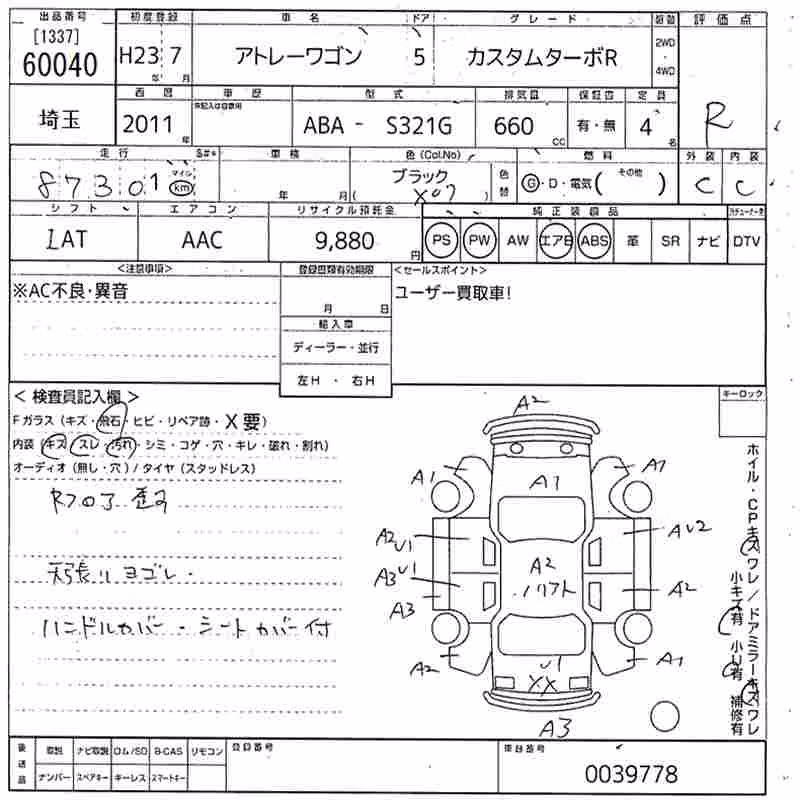 出品番号 初度登録 車名 ドア グレード 駆動 評価点
[1337]
60040 H23 7 アトレーワゴン 5 カスタムターボR 2WD・4WD
年 月
埼玉 西暦 車歴 型式 排気量 保証書 定員 R
2011年 ABA - S321G 660cc 有・無 4名
走行 車検 色(Col.No) 燃料 外装 内装
87301 マイル km 年 月 ブラック X07 色替 G・D・電気( その他 ) C C
シフト エアコン リサイクル預託金 純正装備品
IAT AAC 9,880円 PS PW AW エアB ABS 革 SR ナビ DTV
<注意事項> 登録書類有効期限 <セールスポイント>
※AC不良・異音 ユーザー買取車!
月 日
輸入車
ディーラー・並行
左H・右H
<検査員記入欄> キーロック
Fガラス(キズ・飛石・ヒビ・リペア跡・X要)
内装(キズ・スレ・汚れ・シミ・コゲ・穴・キレ・破れ・割れ)
オーディオ(無し・穴)/タイヤ(スタッドレス)
天張りヨゴレ.
ハンドルカバー・シートカバー付
A2
A1 A1 A1
A2 U1 AU2
A2
A3 U1 A2
A3
A2 U1 A1
XX
A3
ホイル・CPキズワレ/ドアミラーキズワレ
小キズ有 小U有 補修有
後送品 取説 ナビ取説 ロム/SD B-CAS リモコン 登録番号 車台番号
ナンバー スペアキー キーレス スマートキー 0039778